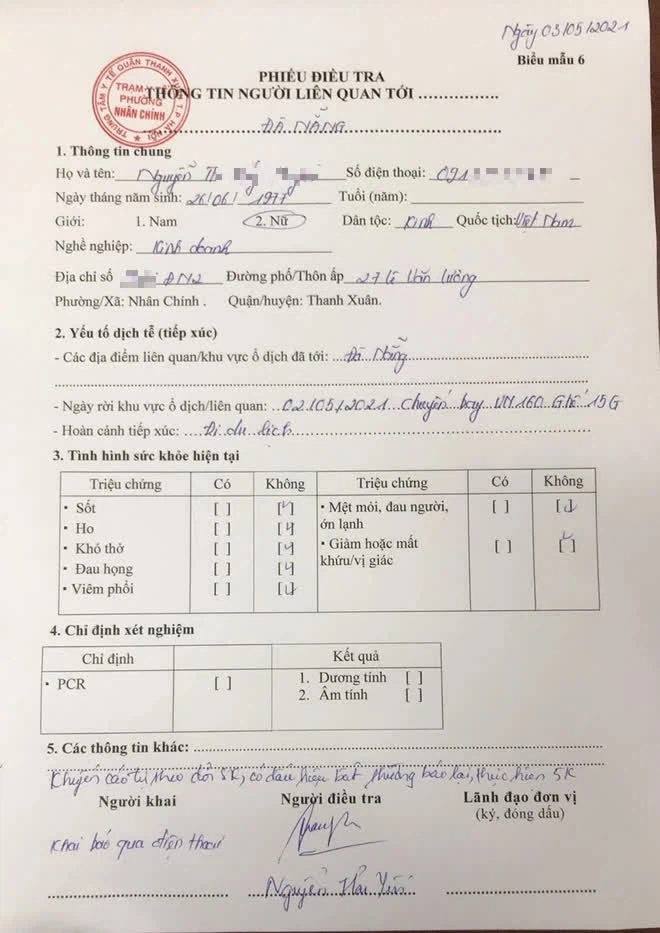 Ngày 03/05/2021
Biểu mẫu 6
TRUNG TÂM Y TẾ QUẬN THANH XUÂN T.P HÀ NỘI
TRẠM Y TẾ
PHƯỜNG
NHÂN CHÍNH
PHIẾU ĐIỀU TRA
THÔNG TIN NGƯỜI LIÊN QUAN TỚI ................
ĐÀ NẴNG
1. Thông tin chung
Họ và tên: Nguyễn Th Số điện thoại: 091
Ngày tháng năm sinh: 26/06/1977 Tuổi (năm):
Giới: 1. Nam 2. Nữ Dân tộc: Kinh Quốc tịch: Việt Nam
Nghề nghiệp: Kinh doanh
Địa chỉ số ĐN2 Đường phố/Thôn ấp 27 Lê Văn Lương
Phường/Xã: Nhân Chính . Quận/huyện: Thanh Xuân.
2. Yếu tố dịch tễ (tiếp xúc)
- Các địa điểm liên quan/khu vực ổ dịch đã tới: Đà Nẵng
- Ngày rời khu vực ổ dịch/liên quan: 02/05/2021 chuyến bay VN160 Ghế 15G
- Hoàn cảnh tiếp xúc: Đi du lịch
3. Tình hình sức khỏe hiện tại
Triệu chứng Có Không Triệu chứng Có Không
• Sốt [ ] [✓] • Mệt mỏi, đau người, [ ] [✓]
• Ho [ ] [✓] ớn lạnh
• Khó thở [ ] [✓] • Giảm hoặc mất [ ] [✓]
• Đau họng [ ] [✓] khứu/vị giác
• Viêm phổi [ ] [✓]
4. Chỉ định xét nghiệm
Chỉ định Kết quả
• PCR [ ] 1. Dương tính [ ]
2. Âm tính [ ]
5. Các thông tin khác:
Khuyến cáo tự theo dõi SK, có dấu hiệu bất thường báo lại, thực hiện 5K
Người khai Người điều tra Lãnh đạo đơn vị
(ký, đóng dấu)
Khai báo qua điện thoại
Nguyễn Hải Yến